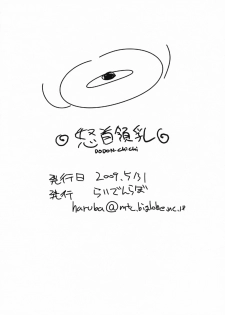 怒首領乳
DODONCHICHI
発行日 2009.5/31
発行 らいでんらぼ
haruba@mtc.biglobe.ne.jp